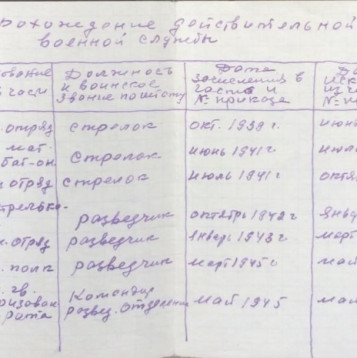 рохождение действительной
военной службы
ование
части
Должность
и воинское
звание по штату
Дата
зачисления в
часть и
№ приказа
. отряд стрелок окт. 1939 г.
мат.
бат-он стрелок июнь 1941 г. июль
отряд стрелок июль 1941 г. октя
трелько-
разведчик октябрь 1942 г. янва
. отряд разведчик январь 1943 г. март
. полк разведчик март 1945 г. май
гв.
ризован
рота
Командир
развед. отделения май 1945 май